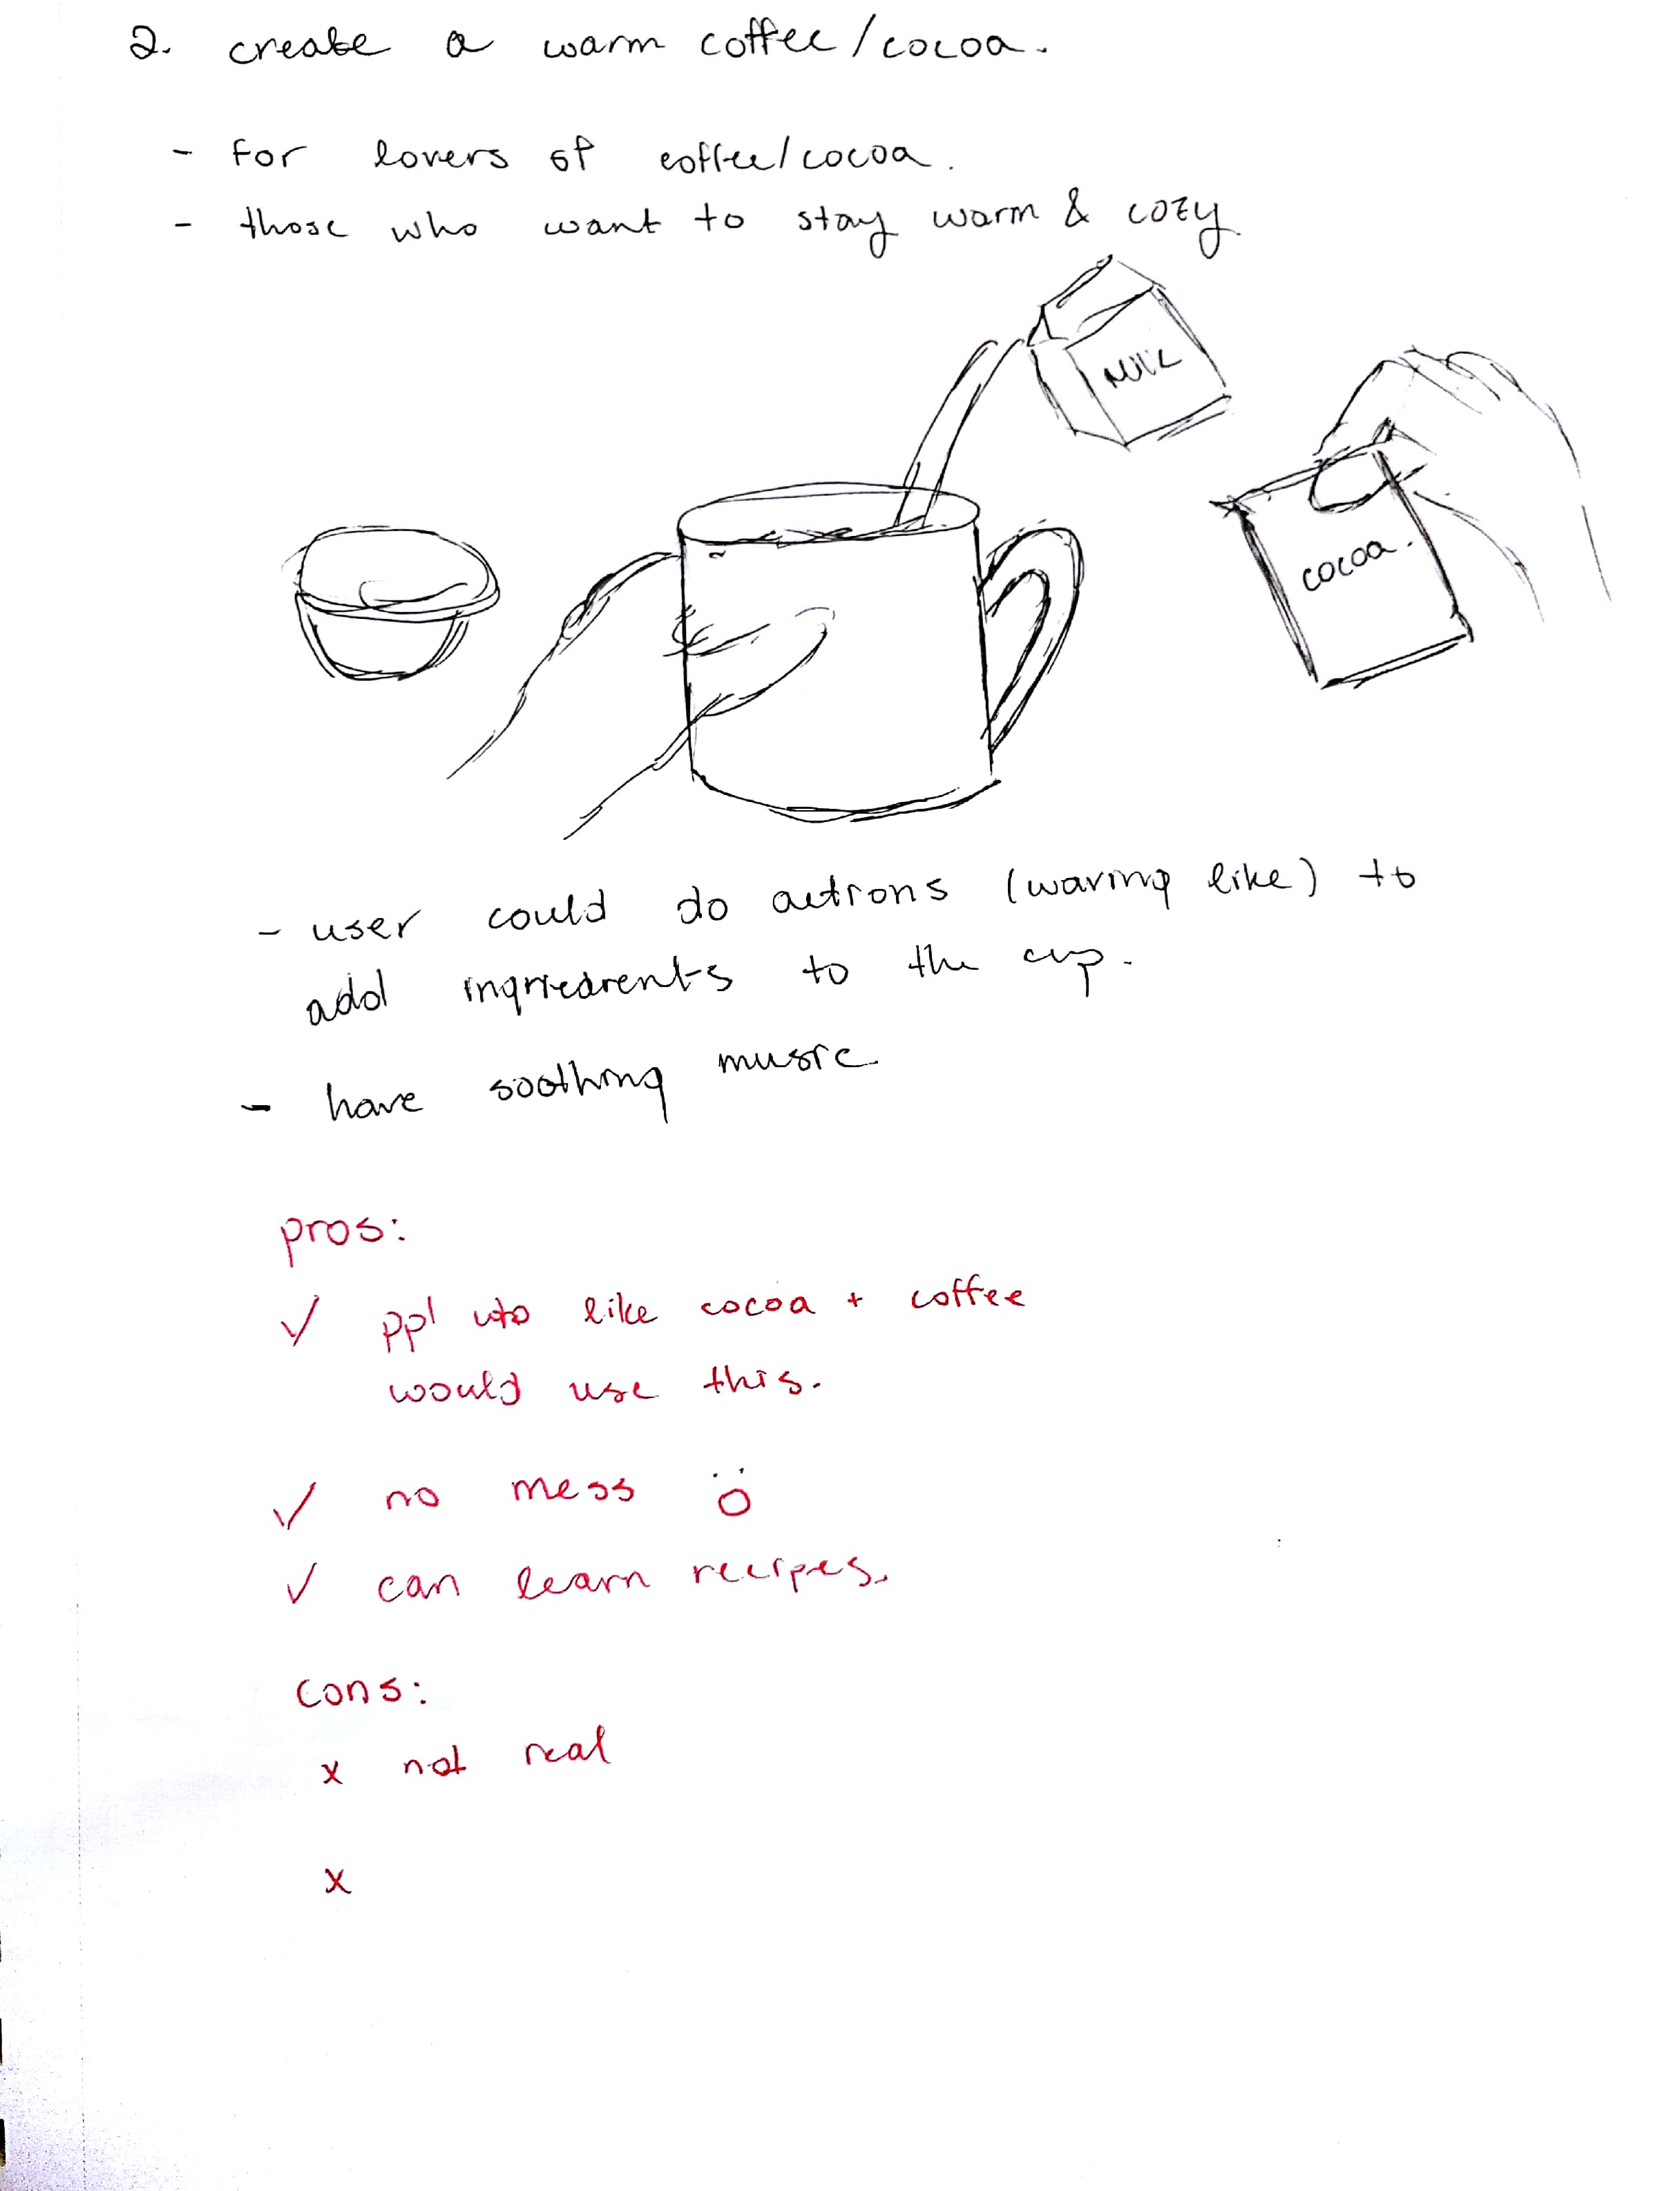 2. create a warm coffee/cocoa.
- for lovers of coffee/cocoa.
- those who want to stay warm & cozy.
MILK
cocoa.
- user could do actions (waving like) to
add ingriedients to the cup.
- have soothing music
pros:
✓ ppl who like cocoa + coffee
would use this.
✓ no mess
✓ can learn recipes.
cons:
x not real
x